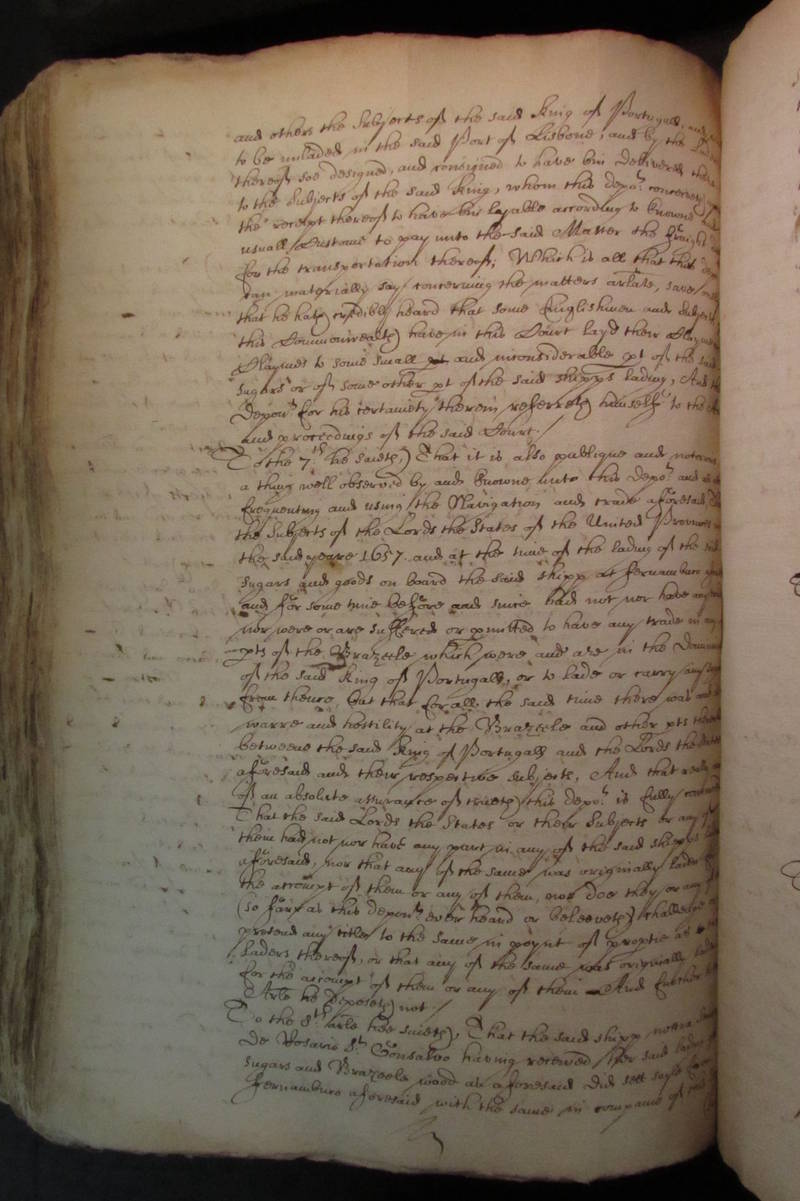 and others the Subjects of the said King of Portugall, and
to be unladed in the said Port of Lisbone, and by the
thereof soe designed, and consigned to have bin delivered
to the Subjects of the said King, whom this depot. conceiveth
the receipt thereof to have bin lyable according to knowne
usuall Custome to pay unto the said Master the fraight
for the transportation thereof; Which is all that this
can materially say concerning the matters arlate, save
that he hath credibly heard that some Englishmen and Subjects
this Commonwealth have in this Court layd their
Claymes to some small and inconsiderable pt of the said
sugars or of some other pt of the said shipps lading, And
Depont for his certainety therein referreth himselfe to the
and proceedings of the said Court./
To the 7th he saieth, That it is also publique and notorious
a thing well observed by and knowne unto this Depot. and
frequenting and using the Navigation and trade aforesaid
the Subjects of the Lords the States of the United Provinces
the said yeare 1657 and at the time of the lading of the said
sugars and goods on board the said shipp at fernambuco
and for some time before and since had not nor have any
nor were or are suffered or pmitted to have any trade in any
pts of the Brazeele which were and are in the
of the said King of Portugall, or to lade or carry any
from thence, but that for all the said time there was
warre and hostility at the Brazeele and other pts
betweene the said King of Portugall and the Lords the
aforesaid and their respective subjects, And that
of an absolute assurance of trueth this depot. is fully
That the said Lords the States or their Subjects or any of
them had not nor have any part in any of the said shipps
aforesaid, nor that any of the same was originally laden
the accompt of them or any of them, nor doe they or any
(so farr as this depont ever heard or beleeveth) challenge
pretend any title to the same in poynt of proptie as
laders thereof, or that any of the same was originally
for the accompt of them or any of them And further
Arle he deposeth not./
To the 8th arle hee saieth, That the said shipp
De Rosario St. Gonsalvo having received her said lading
sugars and Brazeele wood as aforesaid did sett sayle
fernambuco aforesaid with the same in companie of